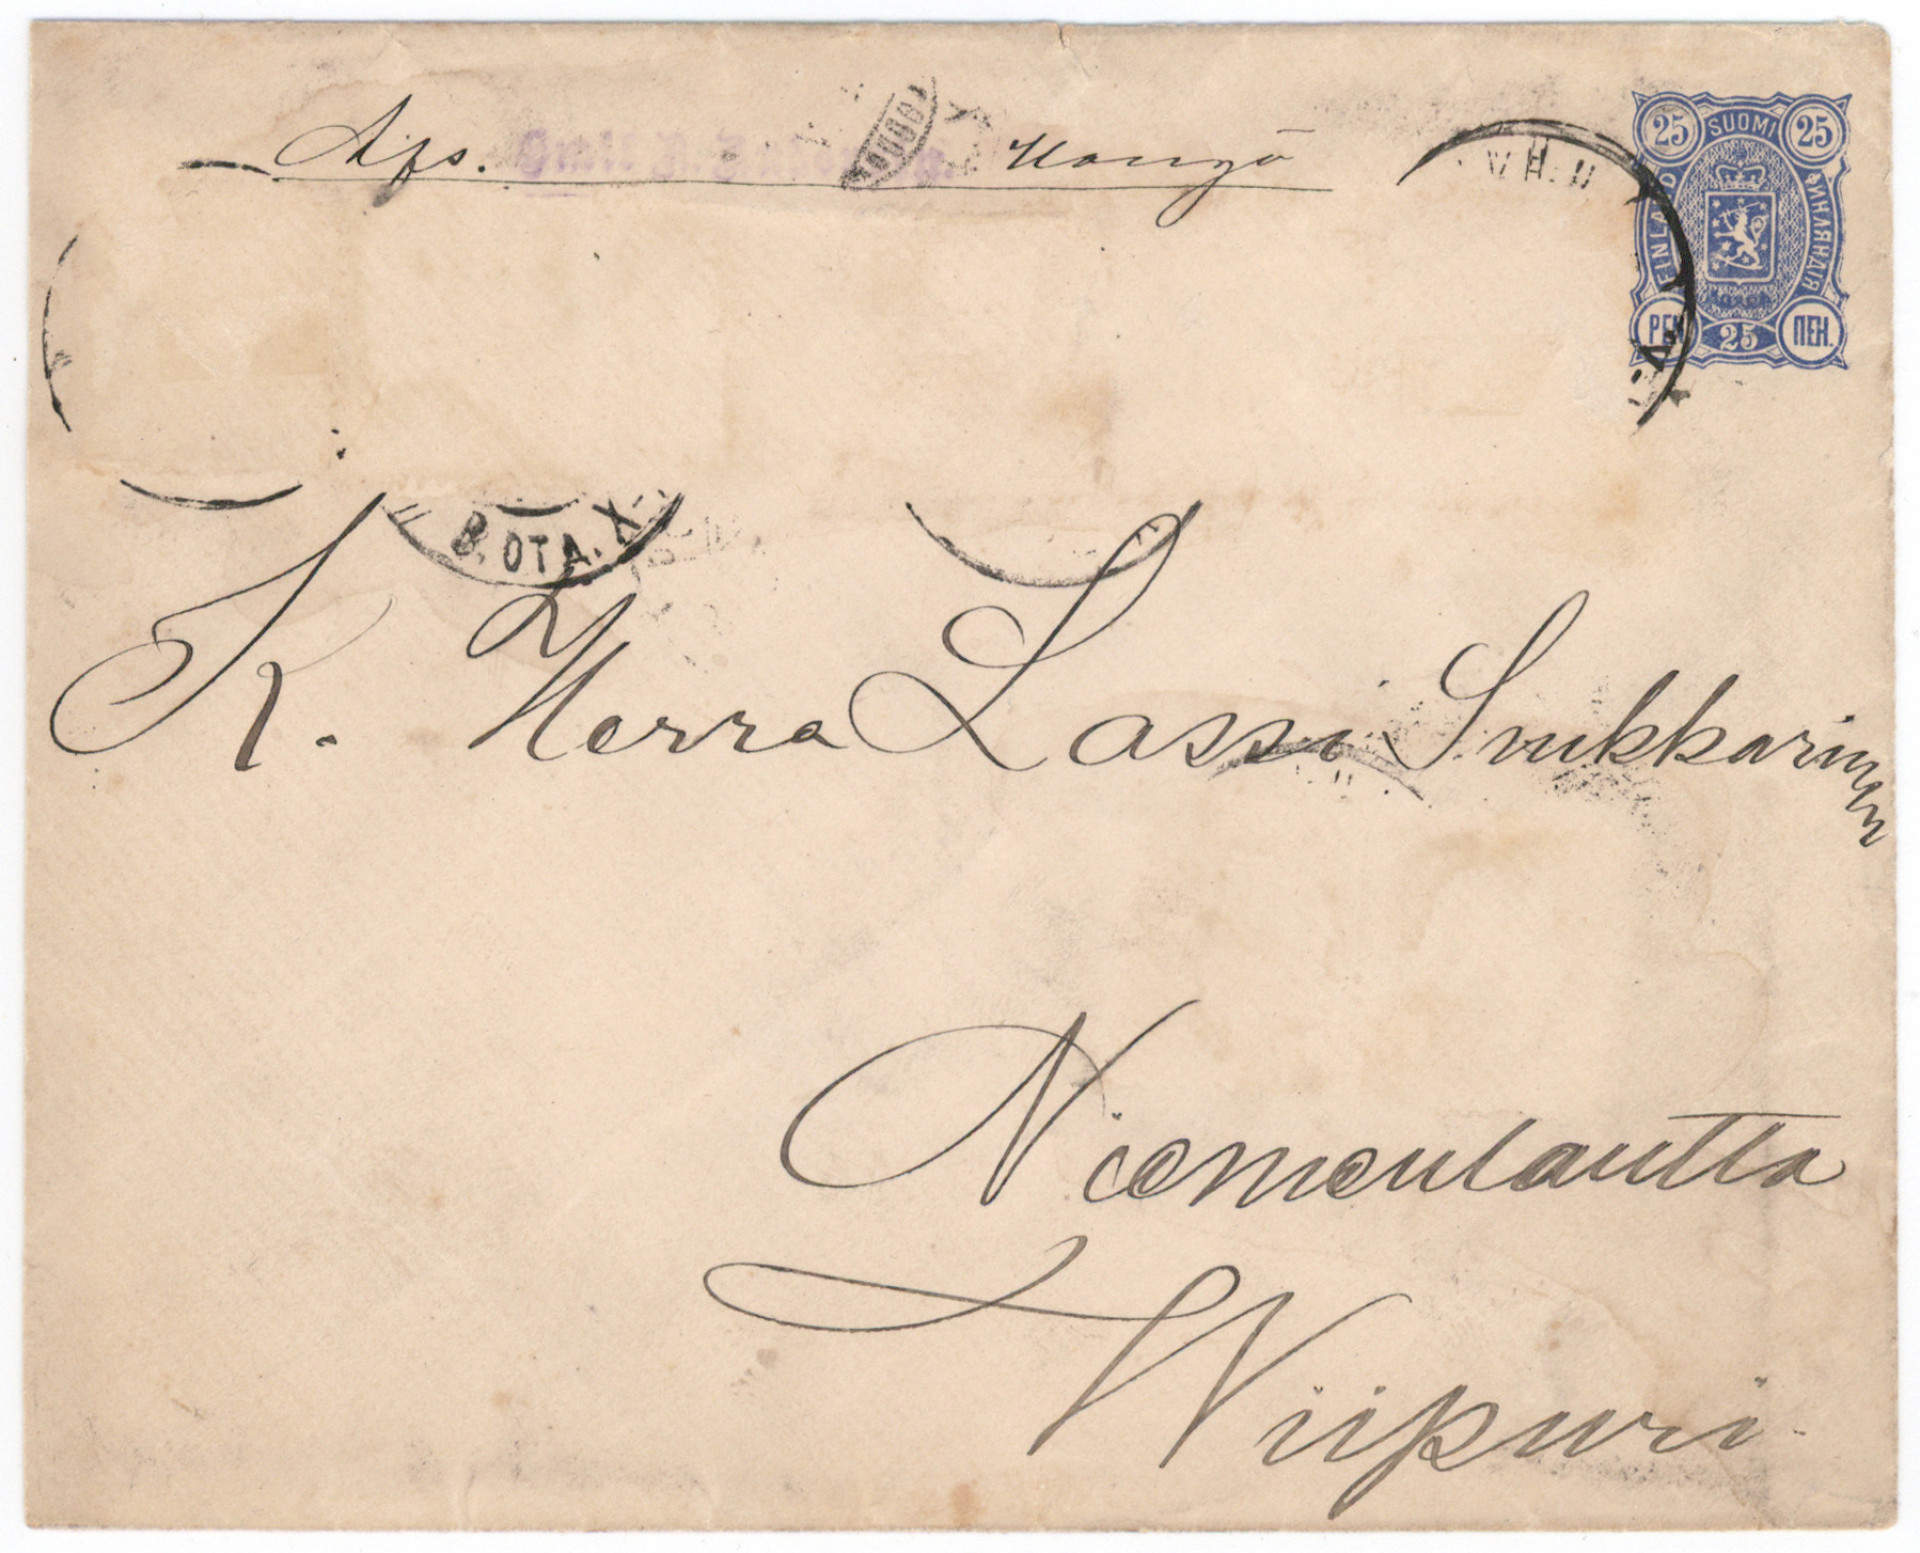 Afs. Hangö
25 SUOMI 25
FINLAND ФИНЛЯНДІЯ
PEN 25 ПЕН.
B. OTA. X
K. Herra Lassi Suikkarinen
Niemenlautta
Wiipuri